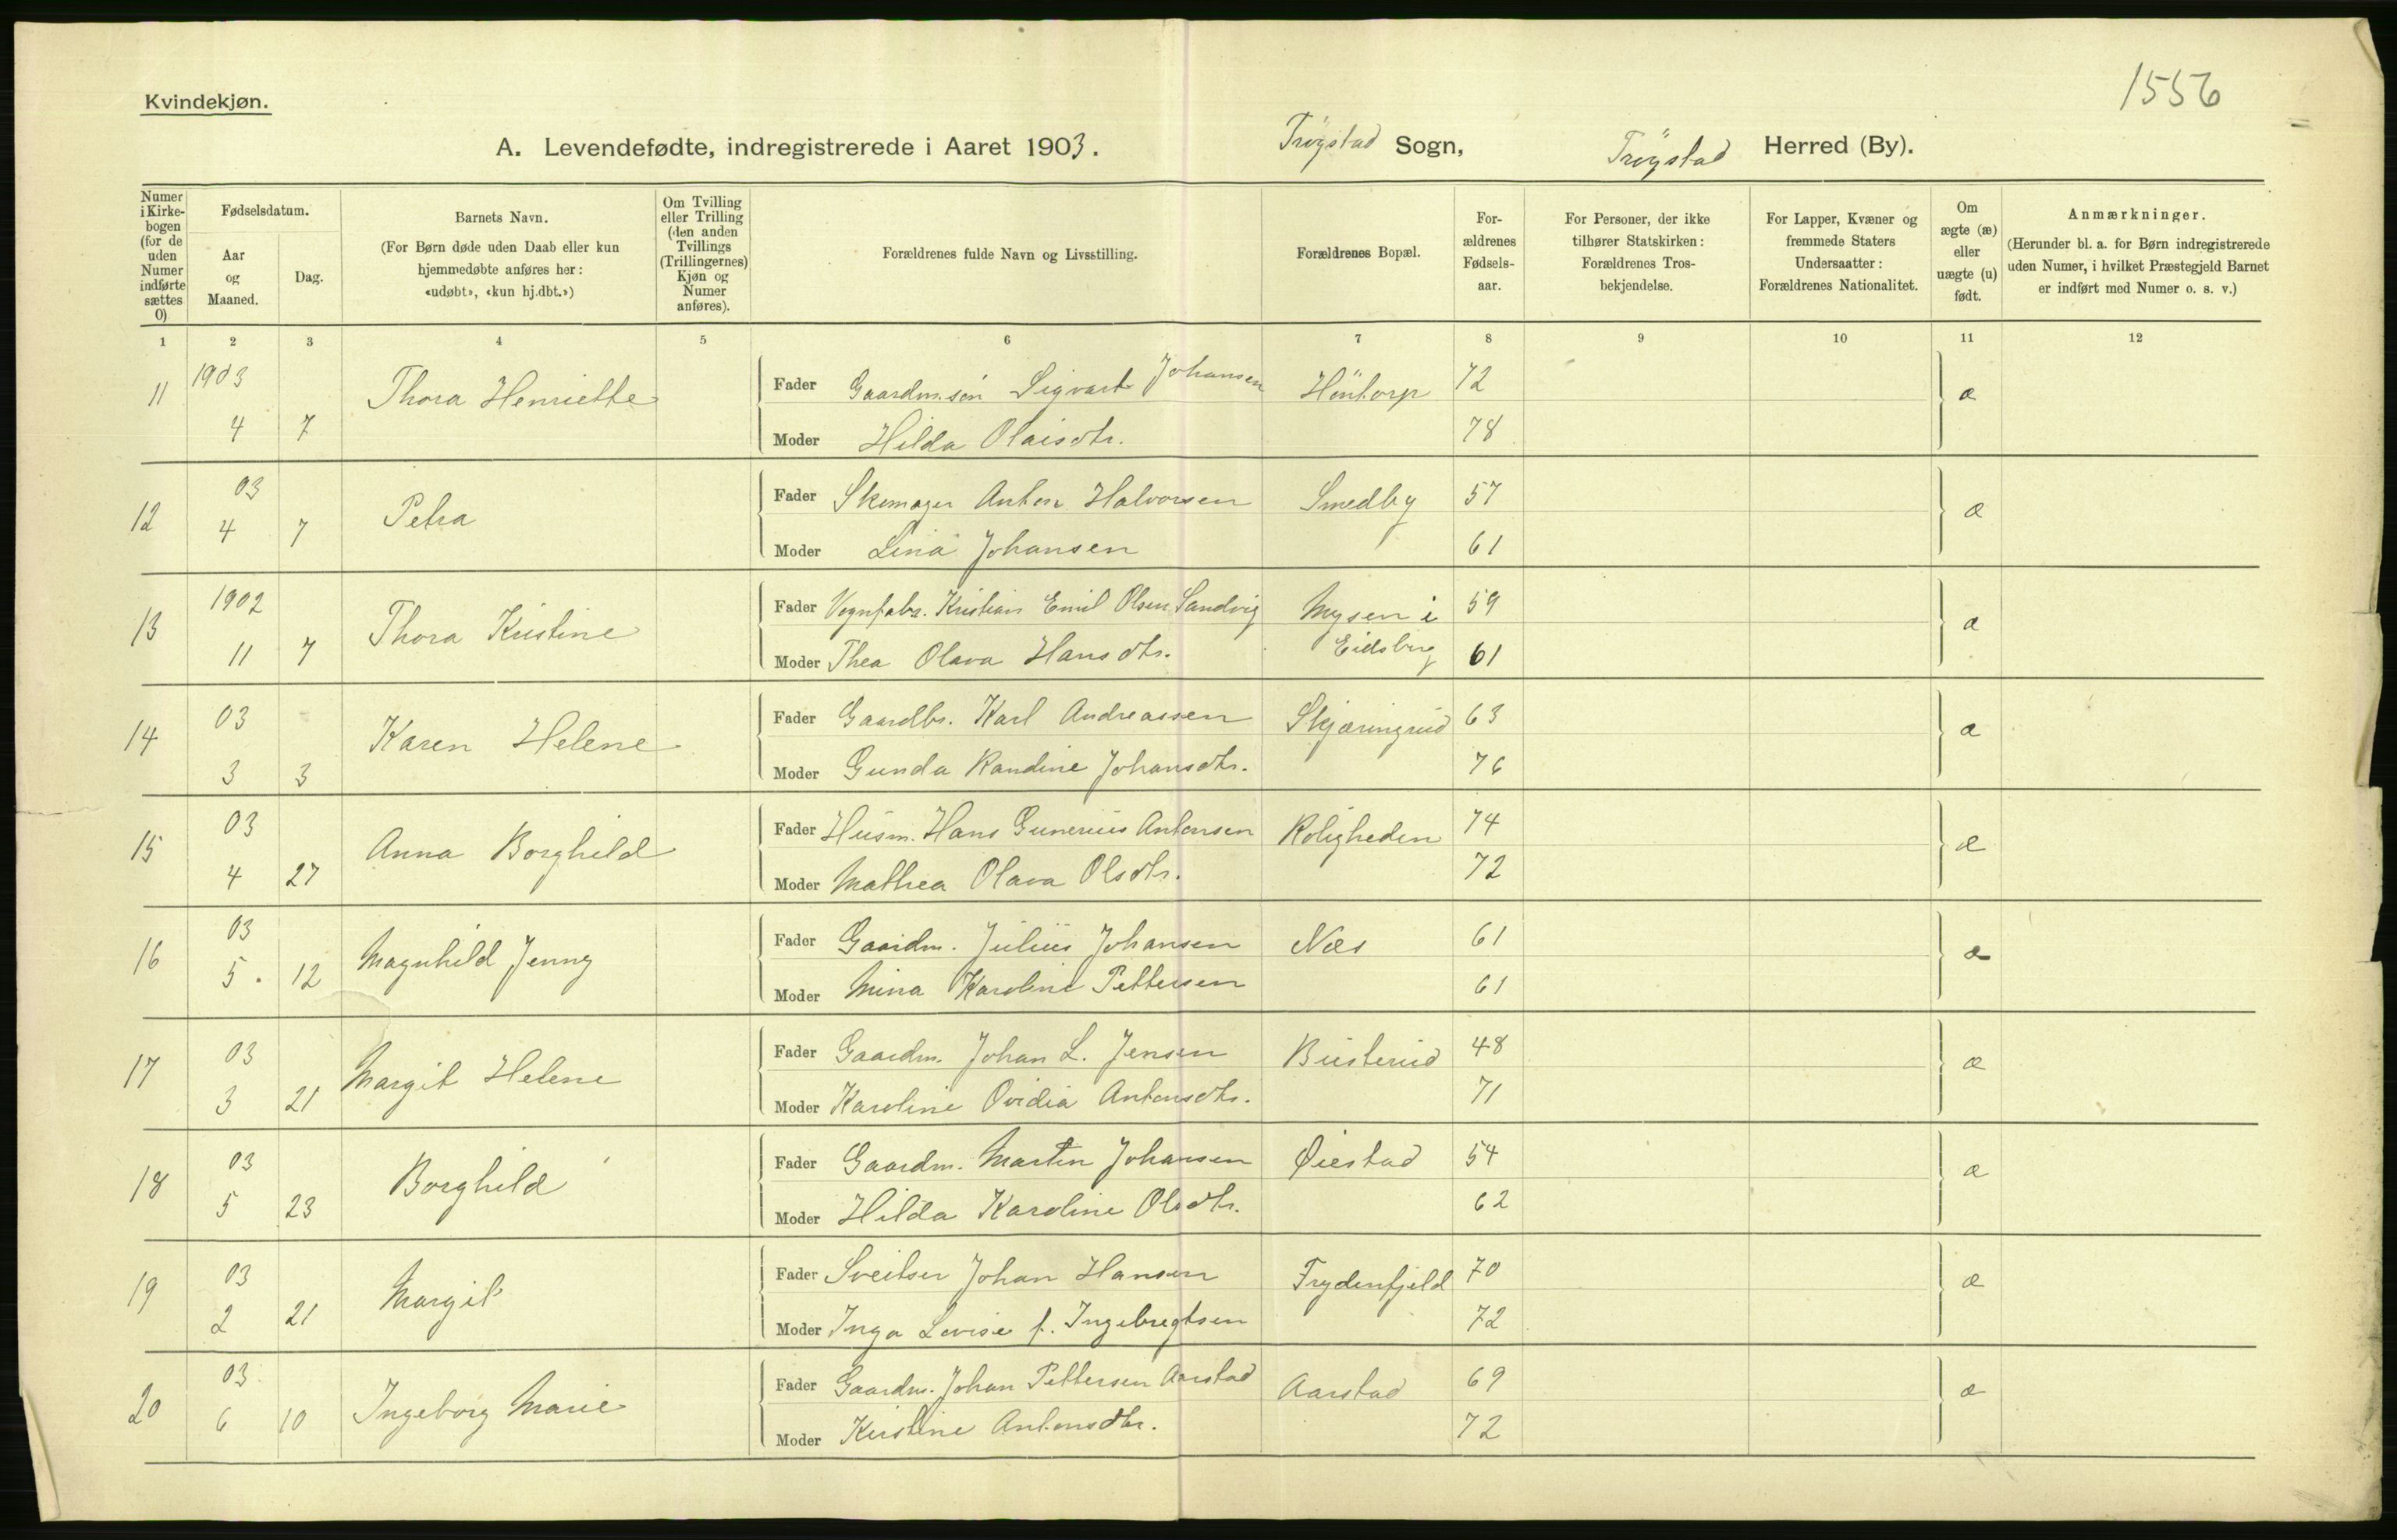 1556
Kvindekjøn.
A. Levendefødte, indregistrerede i Aaret 1903. Trögstad Sogn, Trögstad Herred (By).
Numer i Kirkebogen (for de uden Numer indførte sættes 0)
Fødselsdatum.
Aar og Maaned.
Dag.
Barnets Navn.
(For Børn døde uden Daab eller kun hjemmedøbte anføres her: «udøbt», «kun hj.dbt.»)
Om Tvilling eller Trilling (den anden Tvillings (Trillingernes) Kjøn og Numer anføres).
Forældrenes fulde Navn og Livsstilling.
Forældrenes Bopæl.
For-ældrenes Fødsels-aar.
For Personer, der ikke tilhører Statskirken: Forældrenes Tros-bekjendelse.
For Lapper, Kvæner og fremmede Staters Undersaatter: Forældrenes Nationalitet.
Om ægte (æ) eller uægte (u) født.
Anmærkninger.
(Herunder bl. a. for Børn indregistrerede uden Numer, i hvilket Præstegjeld Barnet er indført med Numer o. s. v.)
1 2 3 4 5 6 7 8 9 10 11 12
11 1903 Thora Henriette Fader Gaardm.sön Sigvart Johansen Höntorp 72 æ
4 7 Moder Hilda Olaisdtr. 78
12 03 Petra Fader Skomager Anton Halvorsen Smedby 57 æ
4 7 Moder Lina Johansen 61
13 1902 Thora Kristine Fader Vognfabr. Kristian Emil Olsen Sandvig Mysen i 59 æ
11 7 Moder Thea Olava Hansdtr. Eidsberg 61
14 03 Karen Helene Fader Gaardbr. Karl Andreassen Skjæringrud 63 æ
3 3 Moder Gunda Randine Johansdtr. 76
15 03 Anna Borghild Fader Husm. Hans Gunerius Antonsen Roligheden 74 æ
4 27 Moder Mathea Olava Olsdtr. 72
16 03 Magnhild Jenny Fader Gaardm. Julius Johansen Næs 61 æ
5. 12 Moder Mina Karoline Pettersen 61
17 03 Margit Helene Fader Gaardm. Johan L. Jensen Busterud 48 æ
3 21 Moder Karoline Ovidia Antonsdtr. 71
18 03 Borghild Fader Gaardm. Martin Johansen Øiestad 54 æ
5 23 Moder Hilda Karoline Olsdtr. 62
19 03 Margit Fader Sveitser Johan Hansen Frydenfjeld 70 æ
2 21 Moder Inga Lovise f. Ingebregtsen 72
20 03 Ingeborg Marie Fader Gaardm. Johan Pettersen Aarstad Aarstad 69 æ
6 10 Moder Kristine Antonsdtr. 72